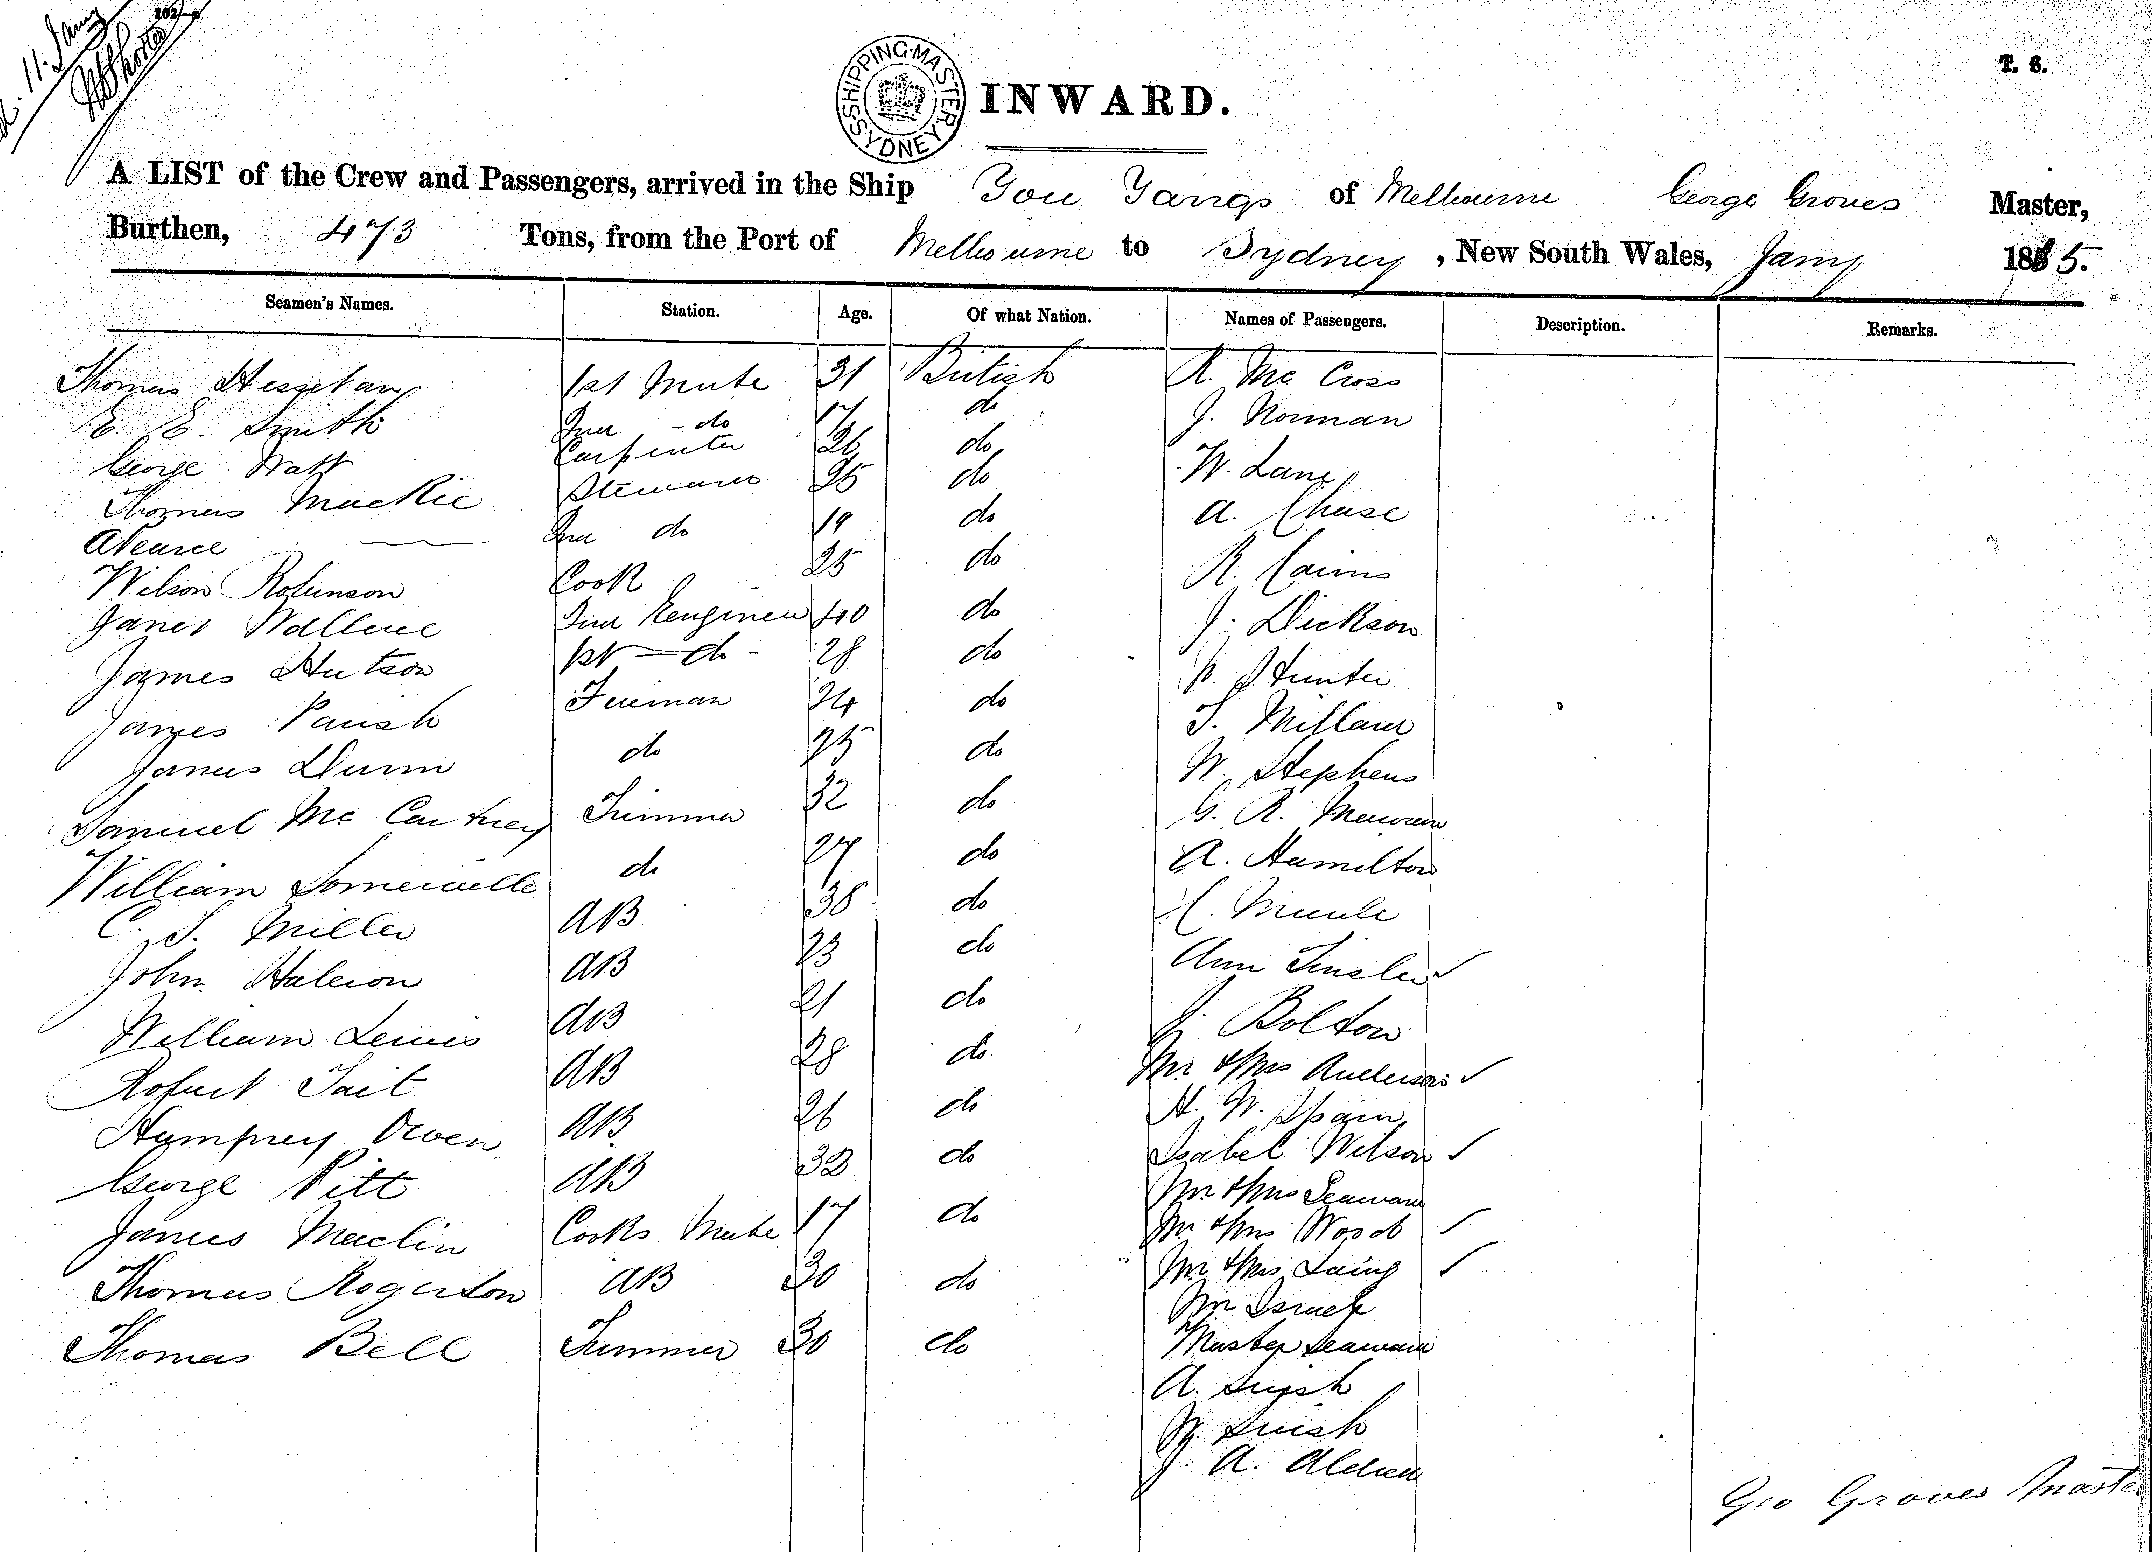 11. Jany
SHIPPING MASTER SYDNEY
INWARD.
T. S.
A LIST of the Crew and Passengers, arrived in the Ship You Yangs of Melbourne George Groves Master,
Burthen, 473 Tons, from the Port of Melbourne to Sydney, New South Wales, Jany 5.
Seamen's Names. Station. Age. Of what Nation. Names of Passengers. Description. Remarks.
Thomas 1st Mate 31 British R. Mc Cross
E. E. Smith 2nd - do 17 do J. Norman
George Watt Carpenter 26 do W. Lane
Thomas Mackie Steward 25 do A. Chase
A Pearce 2nd do 19 do R. Cairns
Wilson Robinson Cook 25 do J. Dickson
James Wallace 2nd Eengineer 40 do Hunter
James Hutson 1st - do - 28 do
James Parish Fireman 24 do W. Stephens
James Dunn do 25 do G. R.
Samuel Mc Cartney Trimmer 32 do A. Hamilton
William Somerville do 27 do
C. S. Miller AB 38 do Ann
John AB 23 do J. Bolton
William Lewis AB 21 do Mr & Mrs Anderson
Robert Tait AB 28 do H. W. Spain
Humphrey Owen AB 26 do Isabel Wilson
George Pitt AB 33 do Mr & Mrs Seaward
James Maclin Cooks Mate 17 do Mr & Mrs Wood
Thomas Rogerson AB 30 do Mr & Mrs Laing
Thomas Bell Trimmer 30 do Mr Israel
Master Seaward
A.
W.
J. A.
Geo Groves Master